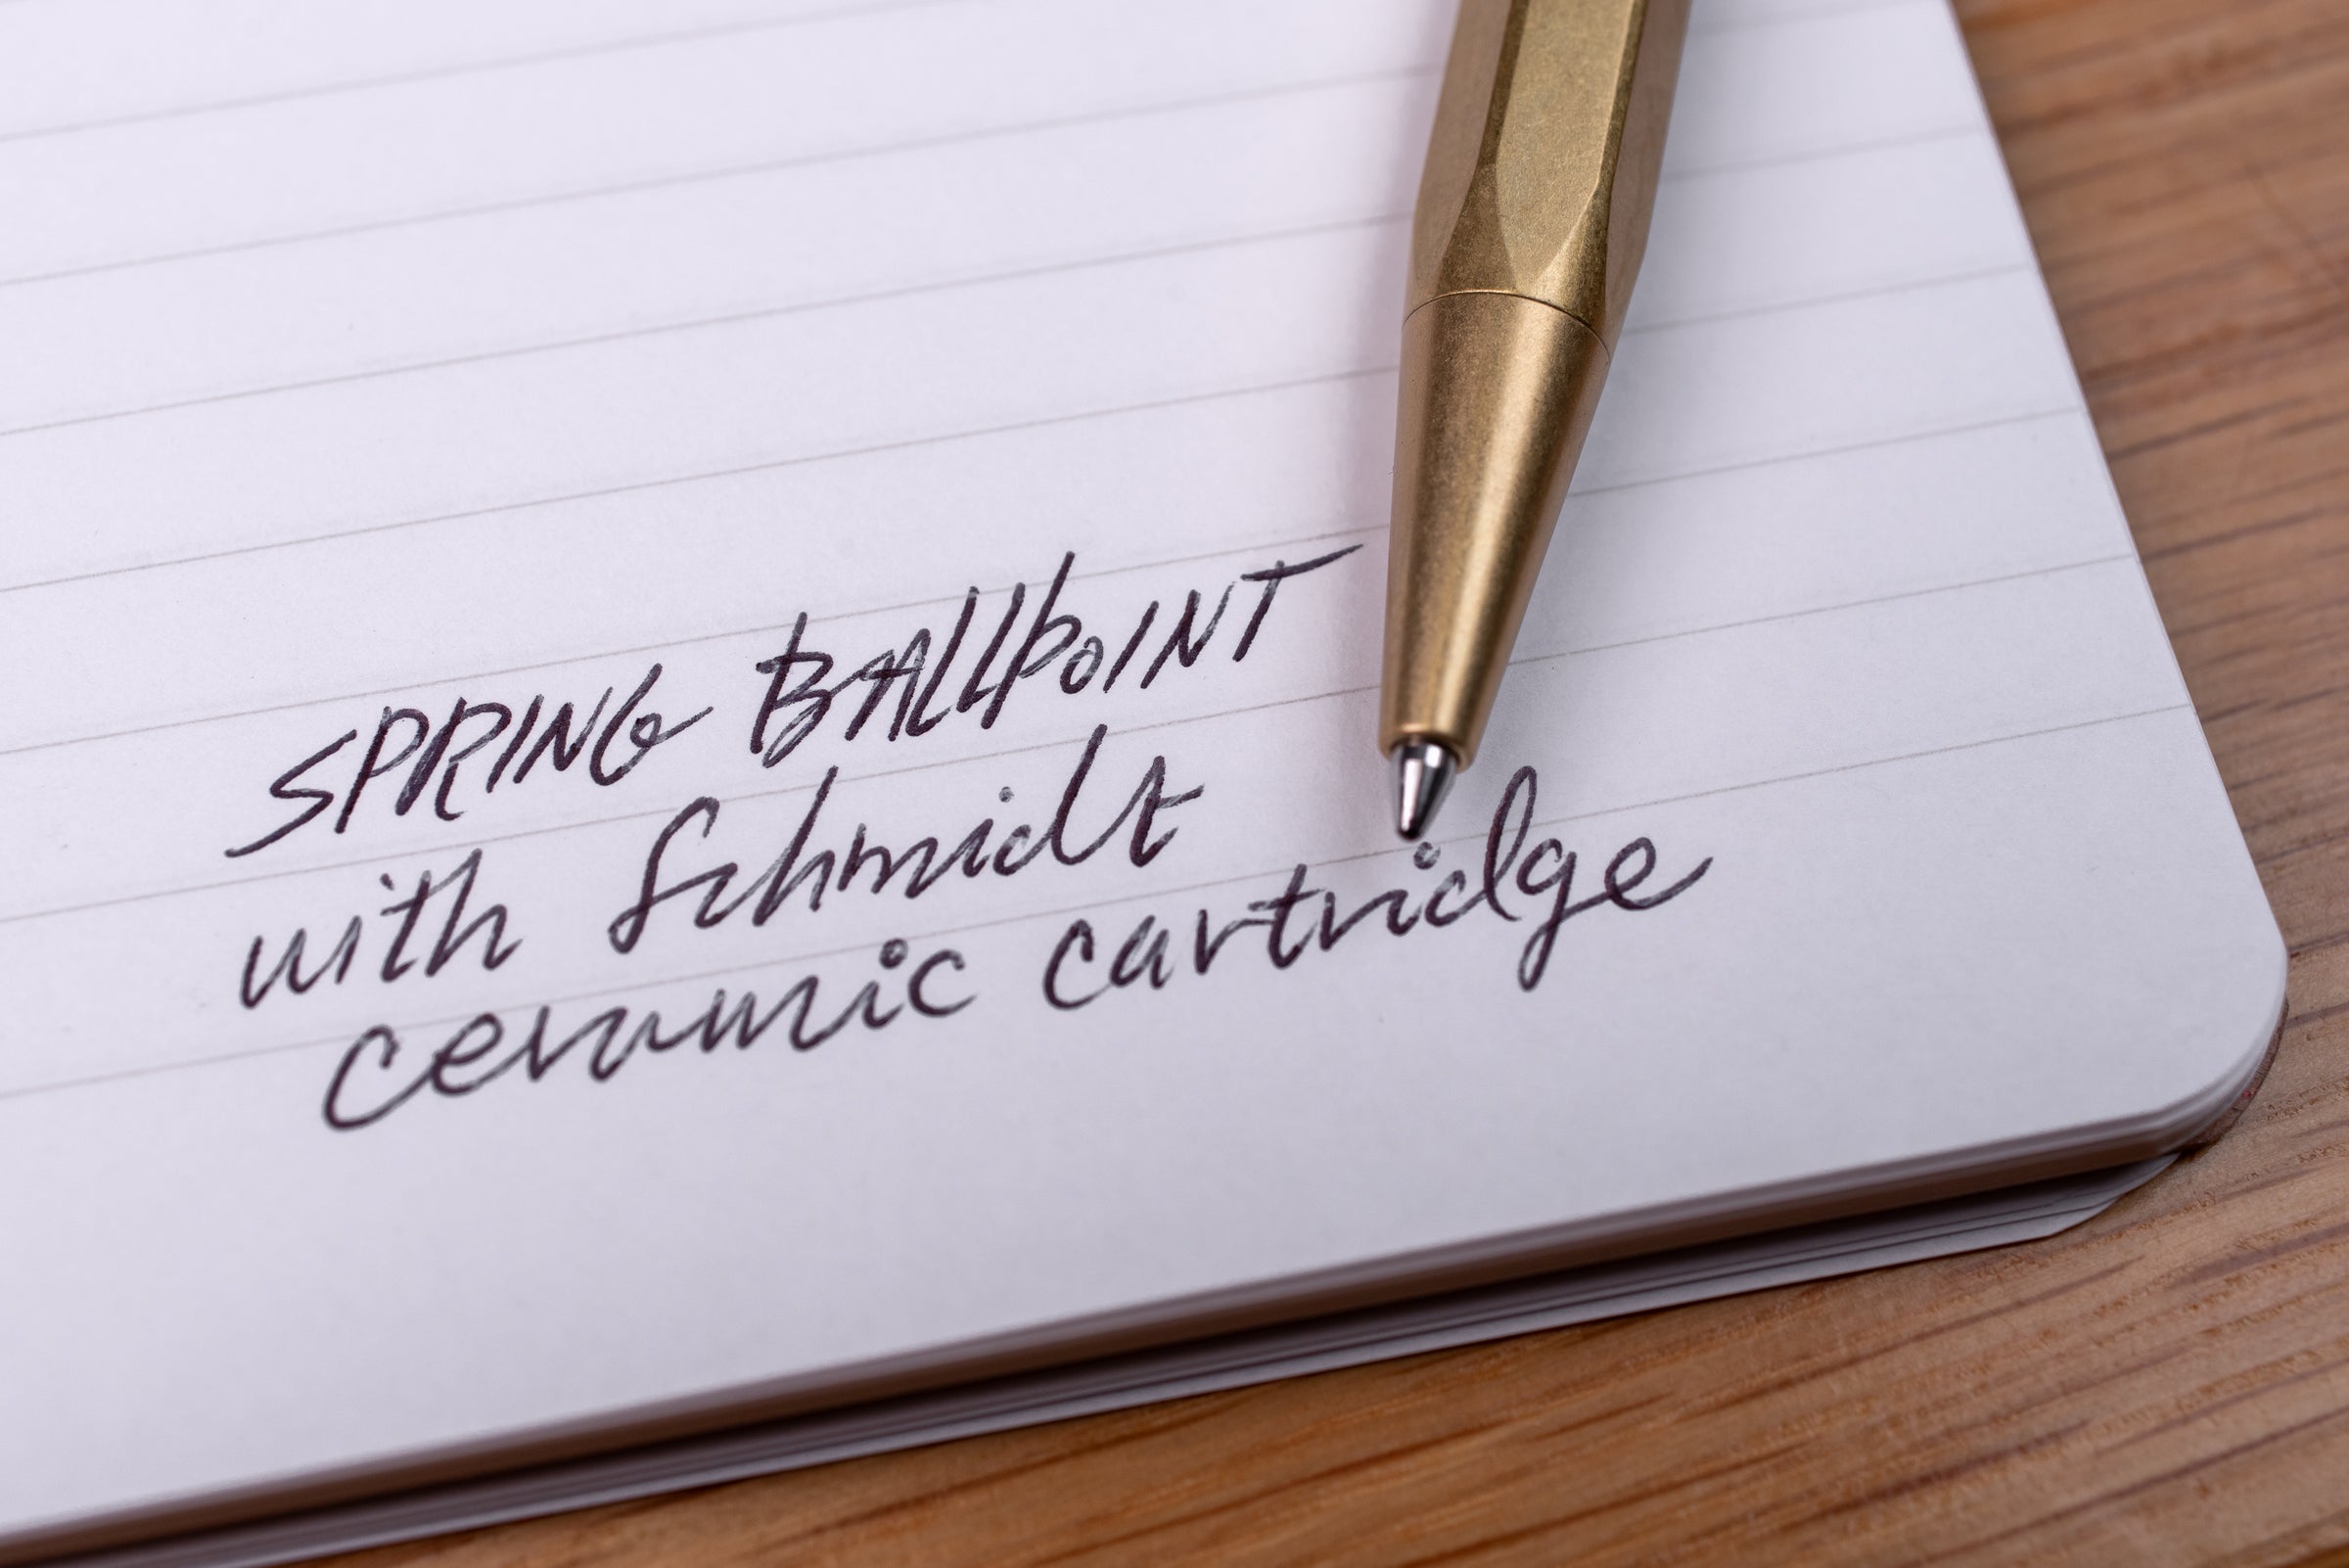 SPRING BALLPOINT
with Schmidt
ceramic cartridge